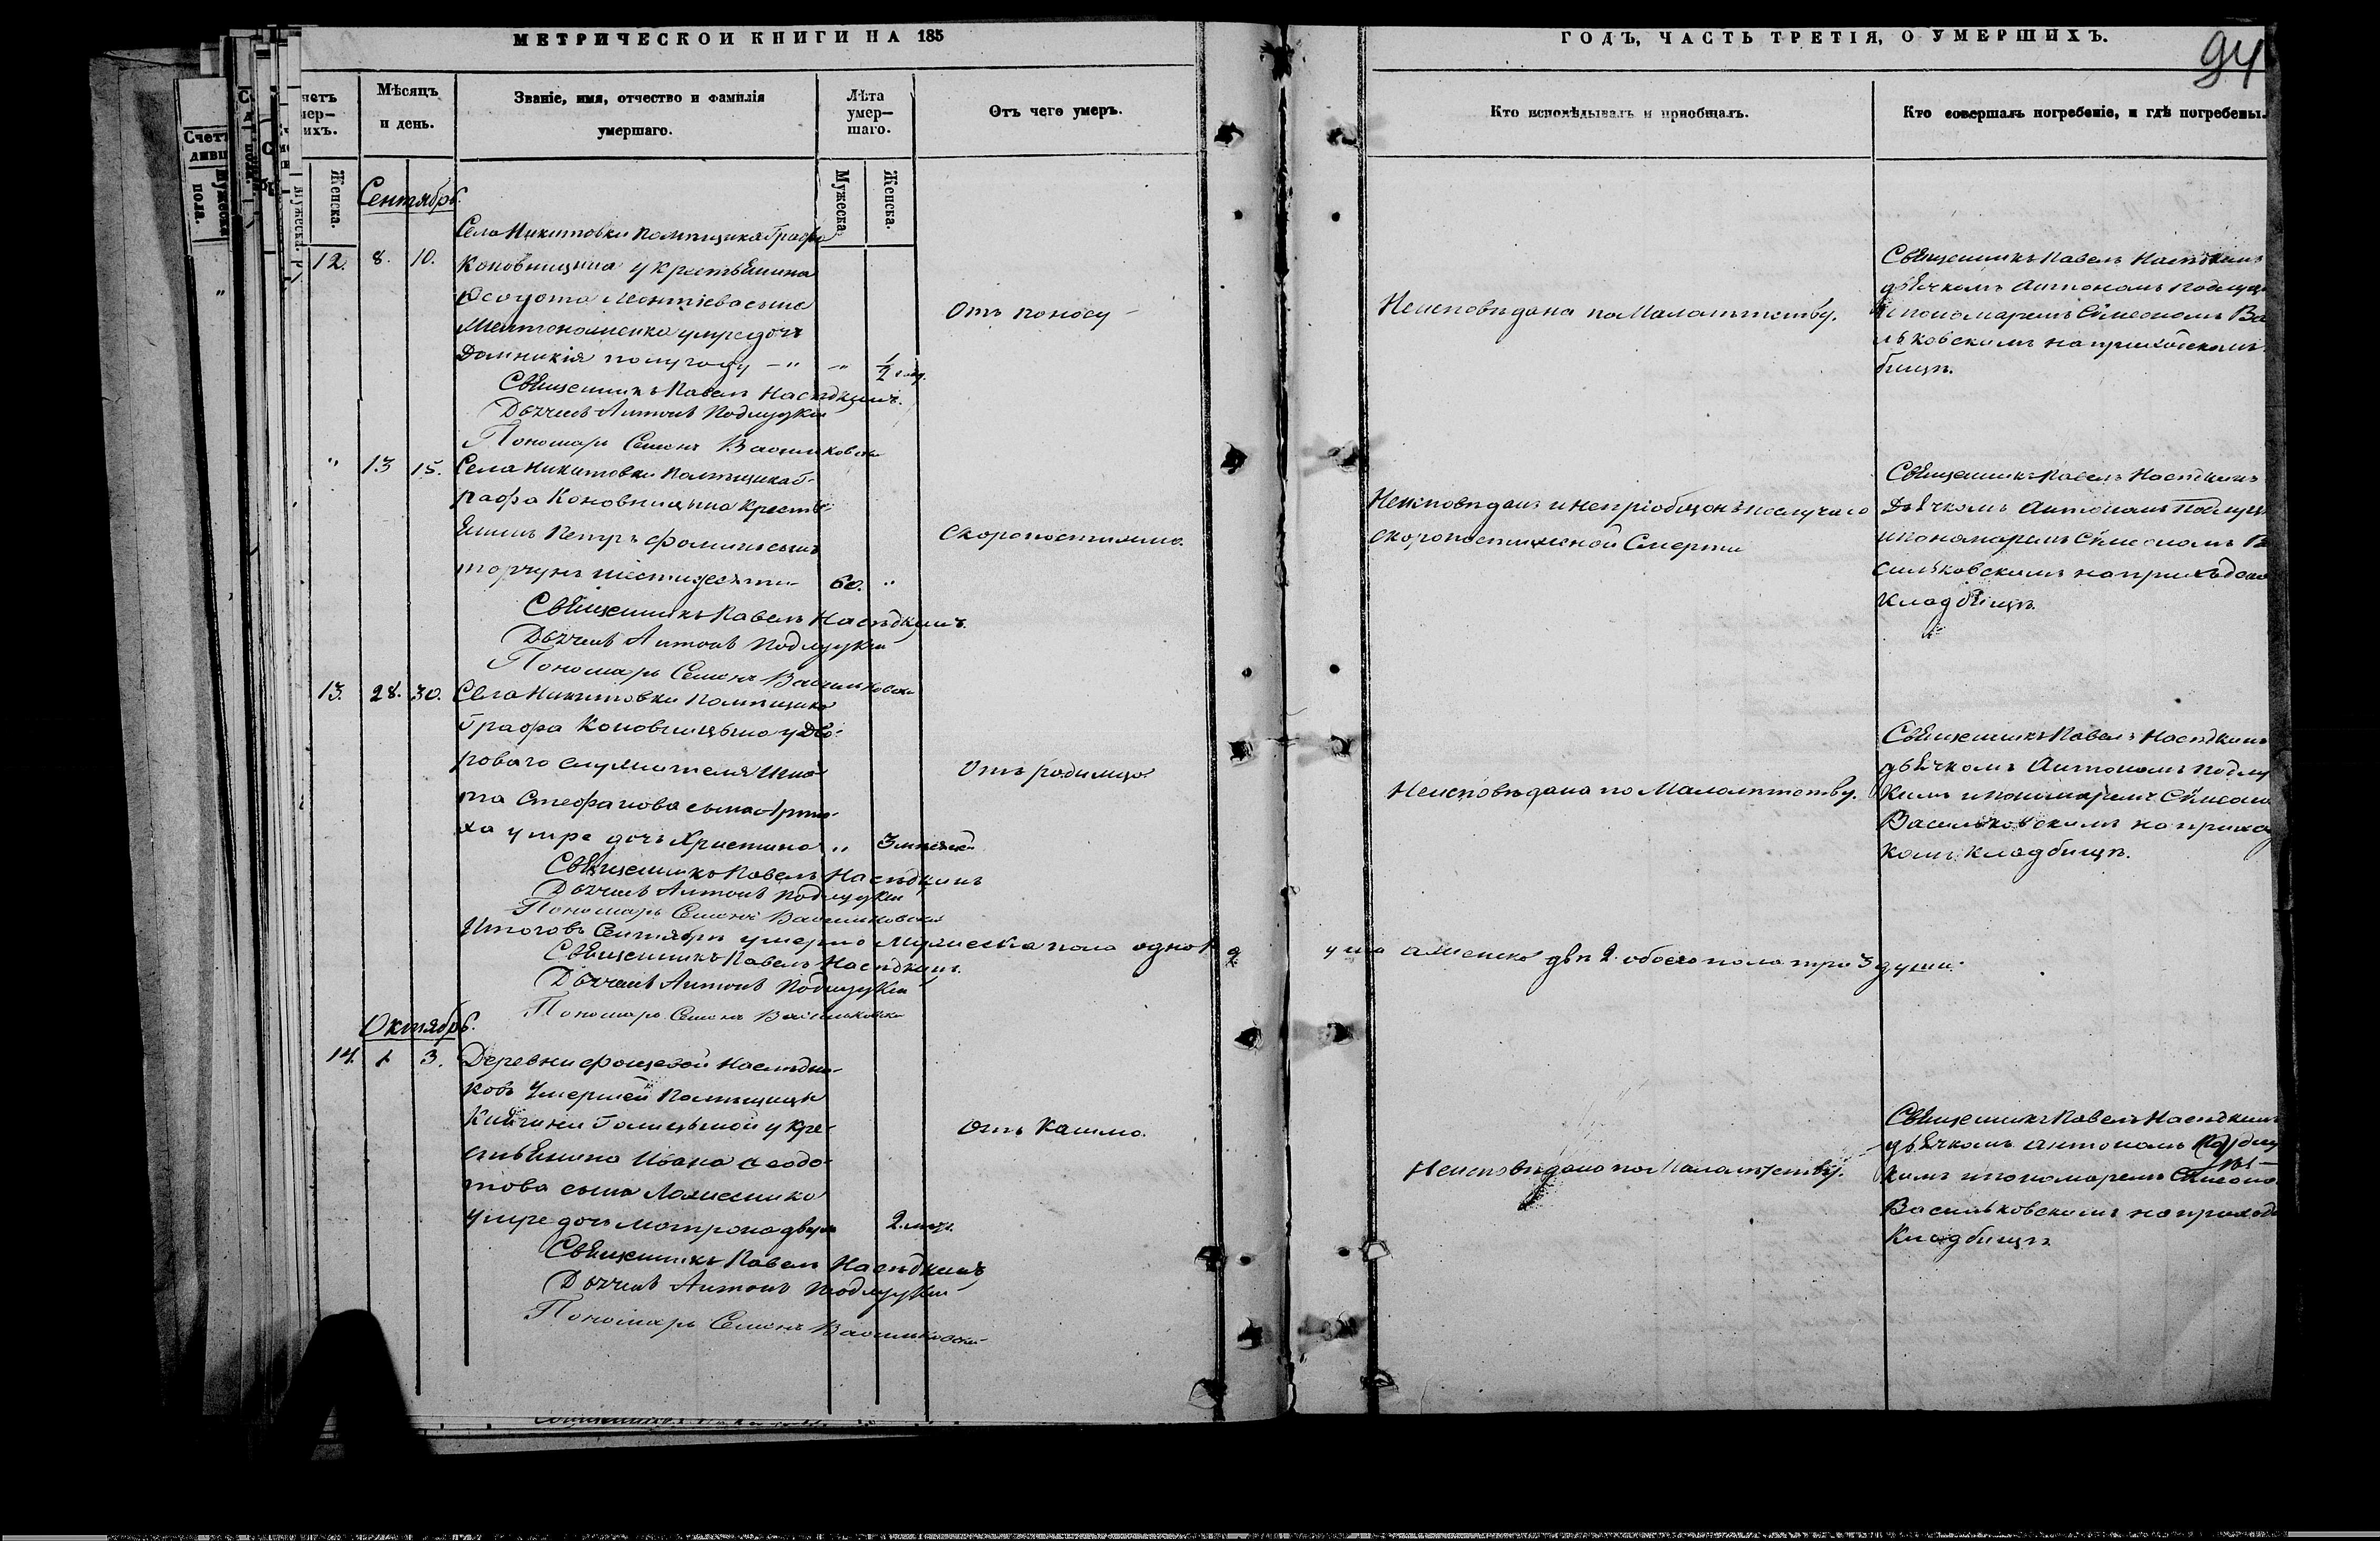 МЕТРИЧЕСКОЙ КНИГИ НА 185
ГОДЪ, ЧАСТЬ ТРЕТІЯ, О УМЕРШИХЪ.
94
Мѣсяцъ
и день.
Званіе, имя, отчество и фамилія
умершаго.
Лѣта
умер-
шаго.
Отъ чего умеръ.
Кто исповѣдывалъ и приобщалъ.
Кто совершалъ погребеніе, и гдѣ погребены.
Женска.
Мужеска.
Женска.
Сентябрь.
12. 8. 10.
Села Никитовки Помѣщика Графа
Коновницына у Крестьянина
Леонтіева сына
умре дочь
Домникія полугоду — " " ½ год.
Отъ поносу
Неисповѣдана по Малолѣтству.
Священникъ Павелъ Насѣдкинъ
дьячкомъ Антономъ
и пономаремъ Сѵмеономъ Ва
льковскимъ на приходскомъ
бищѣ.
Священникъ Павелъ Насѣдкинъ.
Дьячекъ Антонъ Подлуцкій
Пономарь Семенъ Васильковскій
" 13 15.
Села Никитовки Помѣщика Г-
рафа Коновницына Кресть-
янинъ Петръ Фоминъ сынъ
шестидесяти 60. "
Скоропостижно.
Неисповѣданъ и непріобщонъ послучаю
скоропостижной Смерти
Священникъ Павелъ Насѣдкинъ
Дьячкомъ Антономъ Подлуц
и пономаремъ Сѵмеономъ Ва
сильковскимъ на приходско
Кладбищѣ.
Священникъ Павелъ Насѣдкинъ.
Дьячекъ Антонъ Подлуцкій
Пономарь Семенъ Васильковскій
13. 28. 30.
Села Никитовки Помѣщика
Графа Коновницына у Дво-
роваго служителя Игна-
та Стефанова сына
умре дочь Христина " 3 мѣсяц
Отъ родимца
Неисповѣдана по Малолѣтству.
Священникъ Павелъ Насѣдкинъ
дьячкомъ Антономъ Подлу
кимъ и пономаремъ Сѵмеоно
Васильковскимъ на приход
комъ Кладбищѣ.
Священникъ Павелъ Насѣдкинъ
Дьячекъ Антонъ Подлуцкій
Пономарь Семенъ Васильковскій
Итого въ Сентябрѣ умерло Мужеска пола одна 1 д уша а женска двѣ 2. обоего пола три 3 души.
Священникъ Павелъ Насѣдкинъ.
Дьячекъ Антонъ Подлуцкій
Пономарь Семенъ Васильковскій
Октябрь.
14. 1 3.
Деревни Фощевой Наслѣдни-
ковъ Умершей Помѣщицы
Княгини Голицыной у Кре-
стьянина Иоана Феодо-
това сына
умре дочь Матрона двухъ 2. мѣс.
Отъ Кашлю.
Неисповѣдана по Малолѣтству.
Священникъ Павелъ Насѣдкинъ
дьячкомъ Антономъ Подлу
кимъ и пономаремъ Сѵмеоно
Васильковскимъ на приход
Кладбищѣ
Священникъ Павелъ Насѣдкинъ
Дьячекъ Антонъ Подлуцкій
Пономарь Семенъ Васильковскій